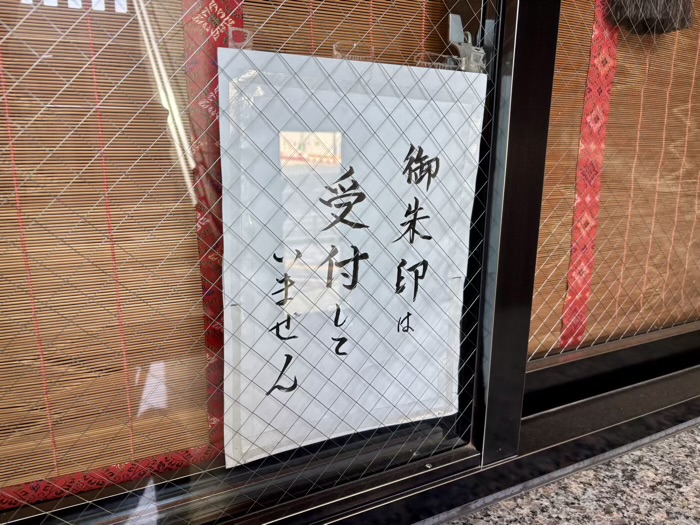 御朱印は
受付して
いません